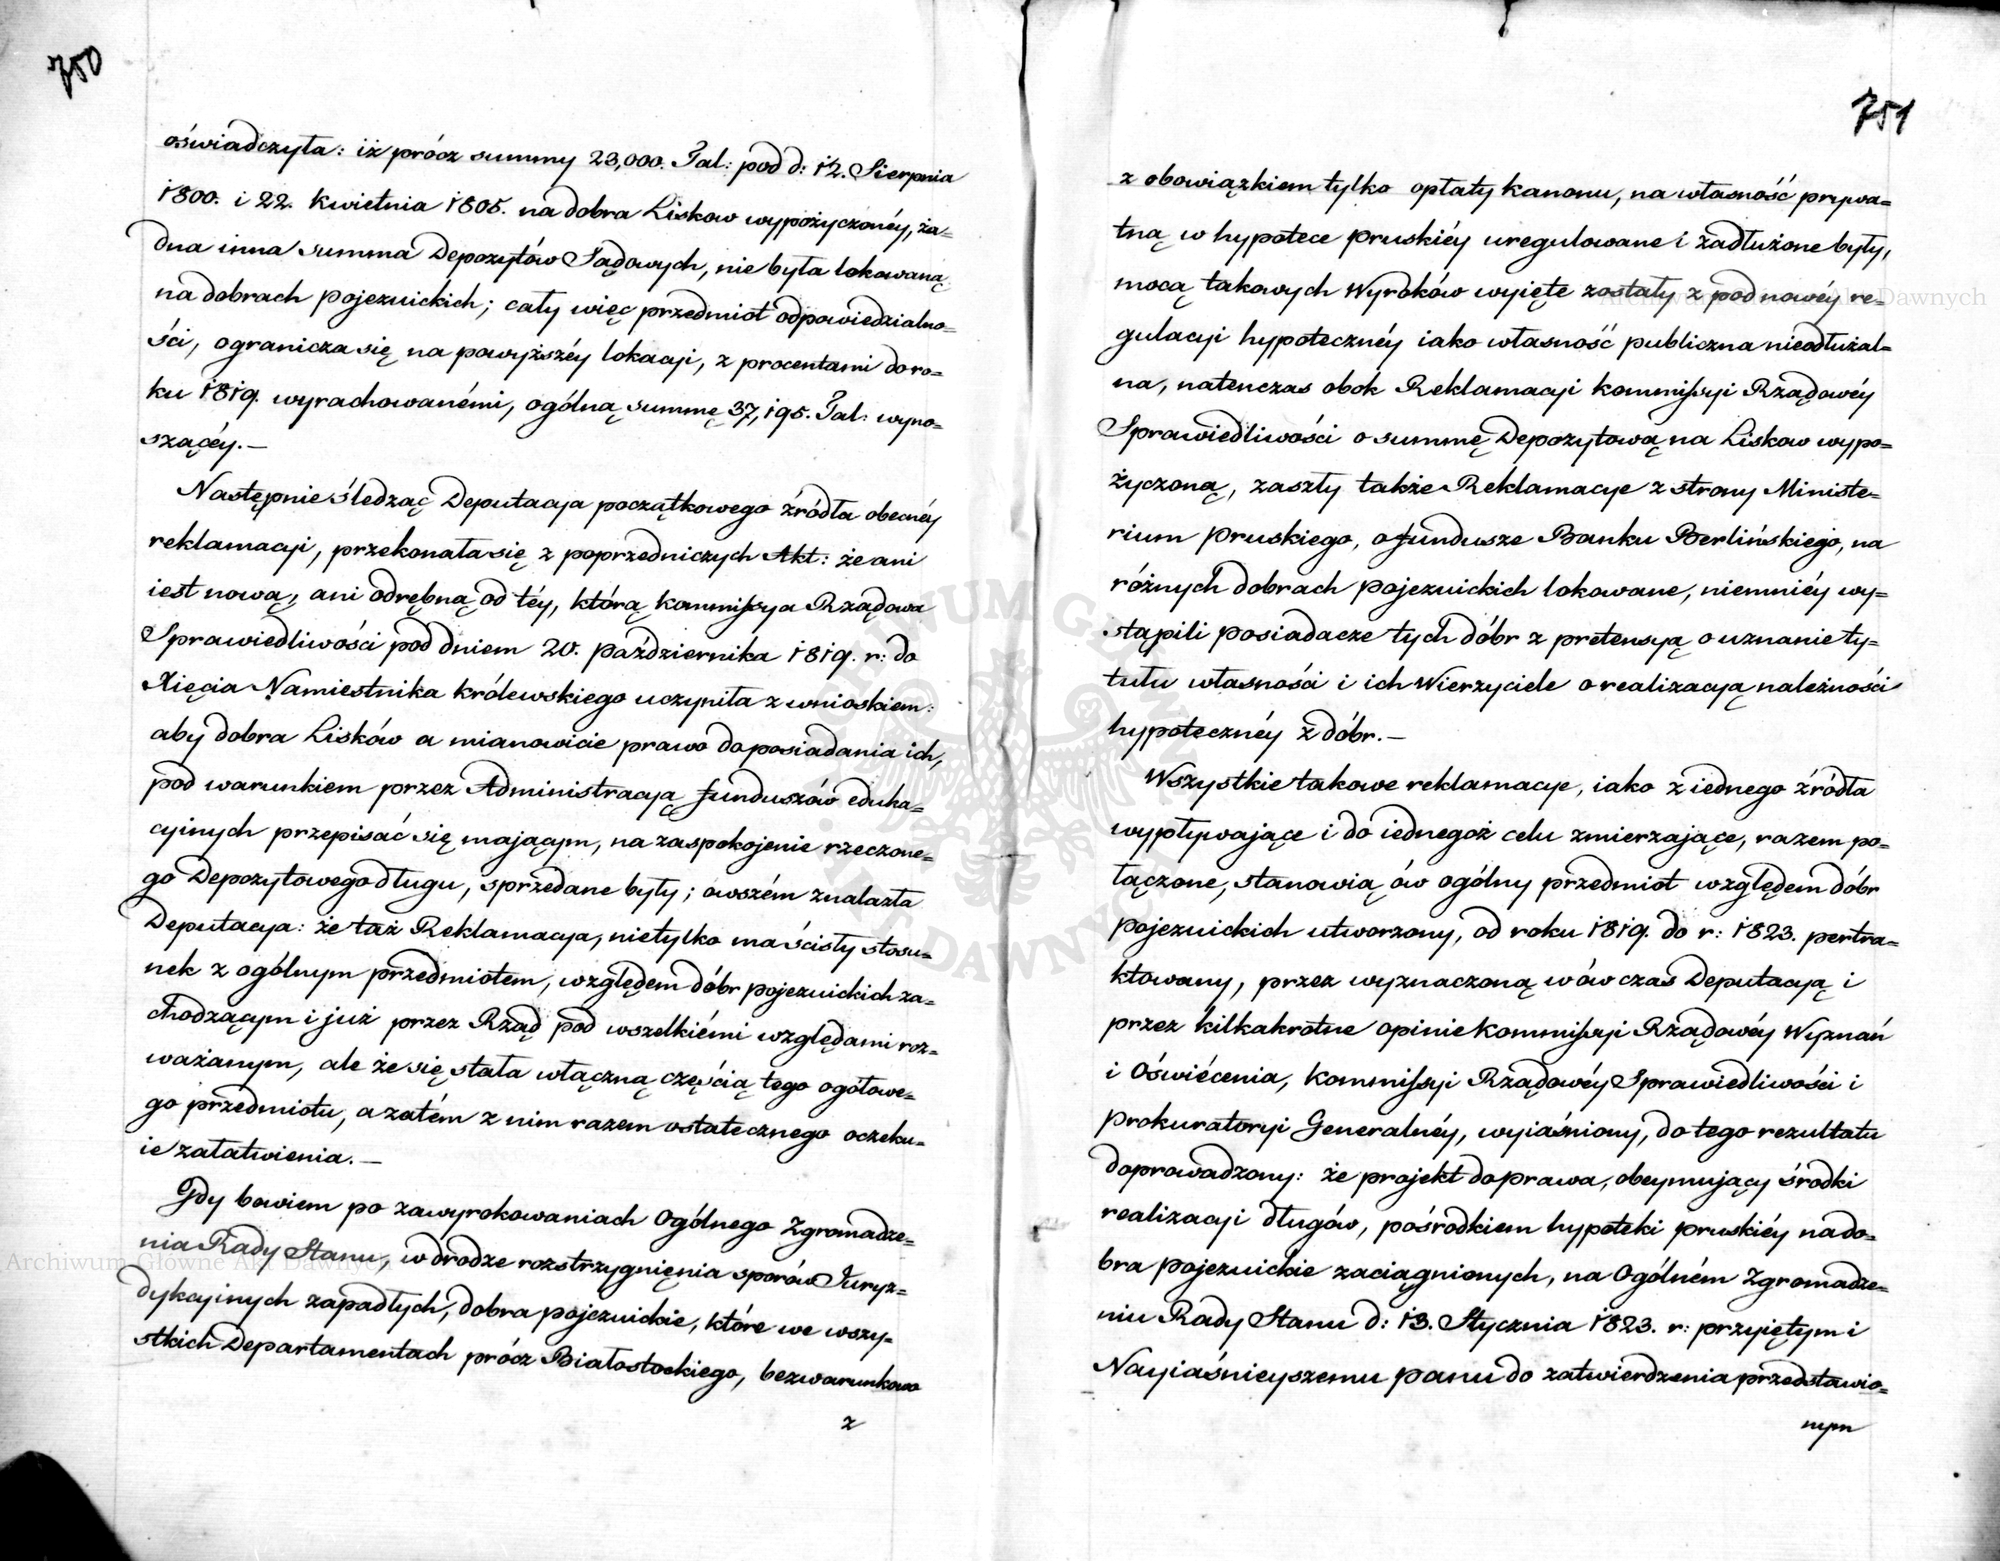 750
oświadczyła: iż prócz summy 23,000. Tal: pod d: 12. Sierpnia
1800. i 22. Kwietnia 1805. na dobra Liskow wypożyczonéy, ża=
dna inna summa Depozytów Sądowych, nie była lokowaną
na dobrach pojezuickich; cały więc przedmiot odpowiedzialno=
ści, ogranicza się na powyższéy lokacyi, z procentami do ro=
ku 1819. wyrachowanémi, ogólną summę 37,195. Tal: wyno=
szącéy.—
Następnie śledząc Deputacya początkowego źródła obecnéy
reklamacyi, przekonała się z poprzedniczych Akt: że ani
iest nową, ani odrębną od téy, którą Kommissya Rządowa
Sprawiedliwości pod dniem 20. Października 1819. r: do
Xięcia Namiestnika królewskiego uczyniła z wnioskiem:
aby dobra Lisków a mianowicie prawo do posiadania ich,
pod warunkiem przez Administracyą funduszów eduka=
cyinych przepisać się maiącym, na zaspokojenie rzeczone=
go Depozytowego długu, sprzedane były; owszém znalazła
Deputacya: że taż Reklamacya, nietylko ma ścisły stosu=
nek z ogólnym przedmiotem, względem dóbr pojezuickich za=
chodzącym i już przez Rząd pod wszelkiémi względami roz=
ważanym, ale że się stała włączną częścią tego ogółowe=
go przedmiotu, a zatém z nim razem ostatecznego oczeku=
ie załatwienia.—
Gdy bowiem po zawyrokowaniach Ogólnego Zgromadze=
nia Rady Stanu, w drodze rozstrzygnięnia sporów Juryz=
dykcyinych zapadłych, dobra pojezuickie, które we wszy=
stkich Departamentach prócz Białostockiego, bezwarunkowo
z
751
z obowiązkiem tylko opłaty kanonu, na własność prywa=
tną w hypotece pruskiéy uregulowane i zadłużone były,
mocą takowych Wyroków wyięte zostały z pod nowéy re=
gulacyi hypotecznéy iako własność publiczna nieodłużal=
na, natenczas obok Reklamacyi Kommissyi Rządowéy
Sprawiedliwości o summę Depozytową na Liskow wypo=
życzoną, zaszły także Reklamacye z strony Ministe=
rium Pruskiego, o fundusze Banku Berlińskiego, na
różnych dobrach pojezuickich lokowane, niemniéy wy=
stąpili posiadacze tych dóbr z pretensyą o uznanie ty=
tułu własności i ich Wierzyciele o realizacyą należności
hypotecznéy z dóbr.—
Wszystkie takowe reklamacye, iako z iednego źródła
wypływające i do iednegoż celu zmierzające, razem po=
łączone, stanowią ów ogólny przedmiot względem dóbr
pojezuickich utworzony, od roku 1819. do r: 1823. pertra=
ktowany, przez wyznaczoną wówczas Deputacyą i
przez kilkakrotne opinie Kommissyi Rządowéy Wyznań
i Oświécenia, Kommissyi Rządowéy Sprawiedliwości i
Prokuratoryi Generalnéy, wyiaśniony, do tego rezultatu
doprowadzony: że projekt do prawa, obeymujący środki
realizacyi długów, pośrodkiem hypoteki pruskiéy na do=
bra pojezuickie zaciągnionych, na Ogólném Zgromadze=
niu Rady Stanu d: 13. Stycznia 1823. r: przyiętym i
Nayiaśnieyszemu Panu do zatwierdzenia przedstawio=
nym
Archiwum Główne Akt Dawnych
Archiwum Główne Akt Dawnych
ARCHIWUM GŁÓWNE AKT DAWNYCH